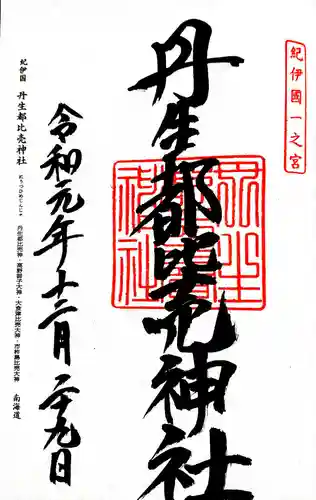 紀伊國一之宮
丹生都比売神社
令和元年十二月二十九日
紀伊国 丹生都比売神社
にうつひめじんじゃ
丹生都比売大神・高野御子大神・大食津比売大神・市杵島比売大神
南海道